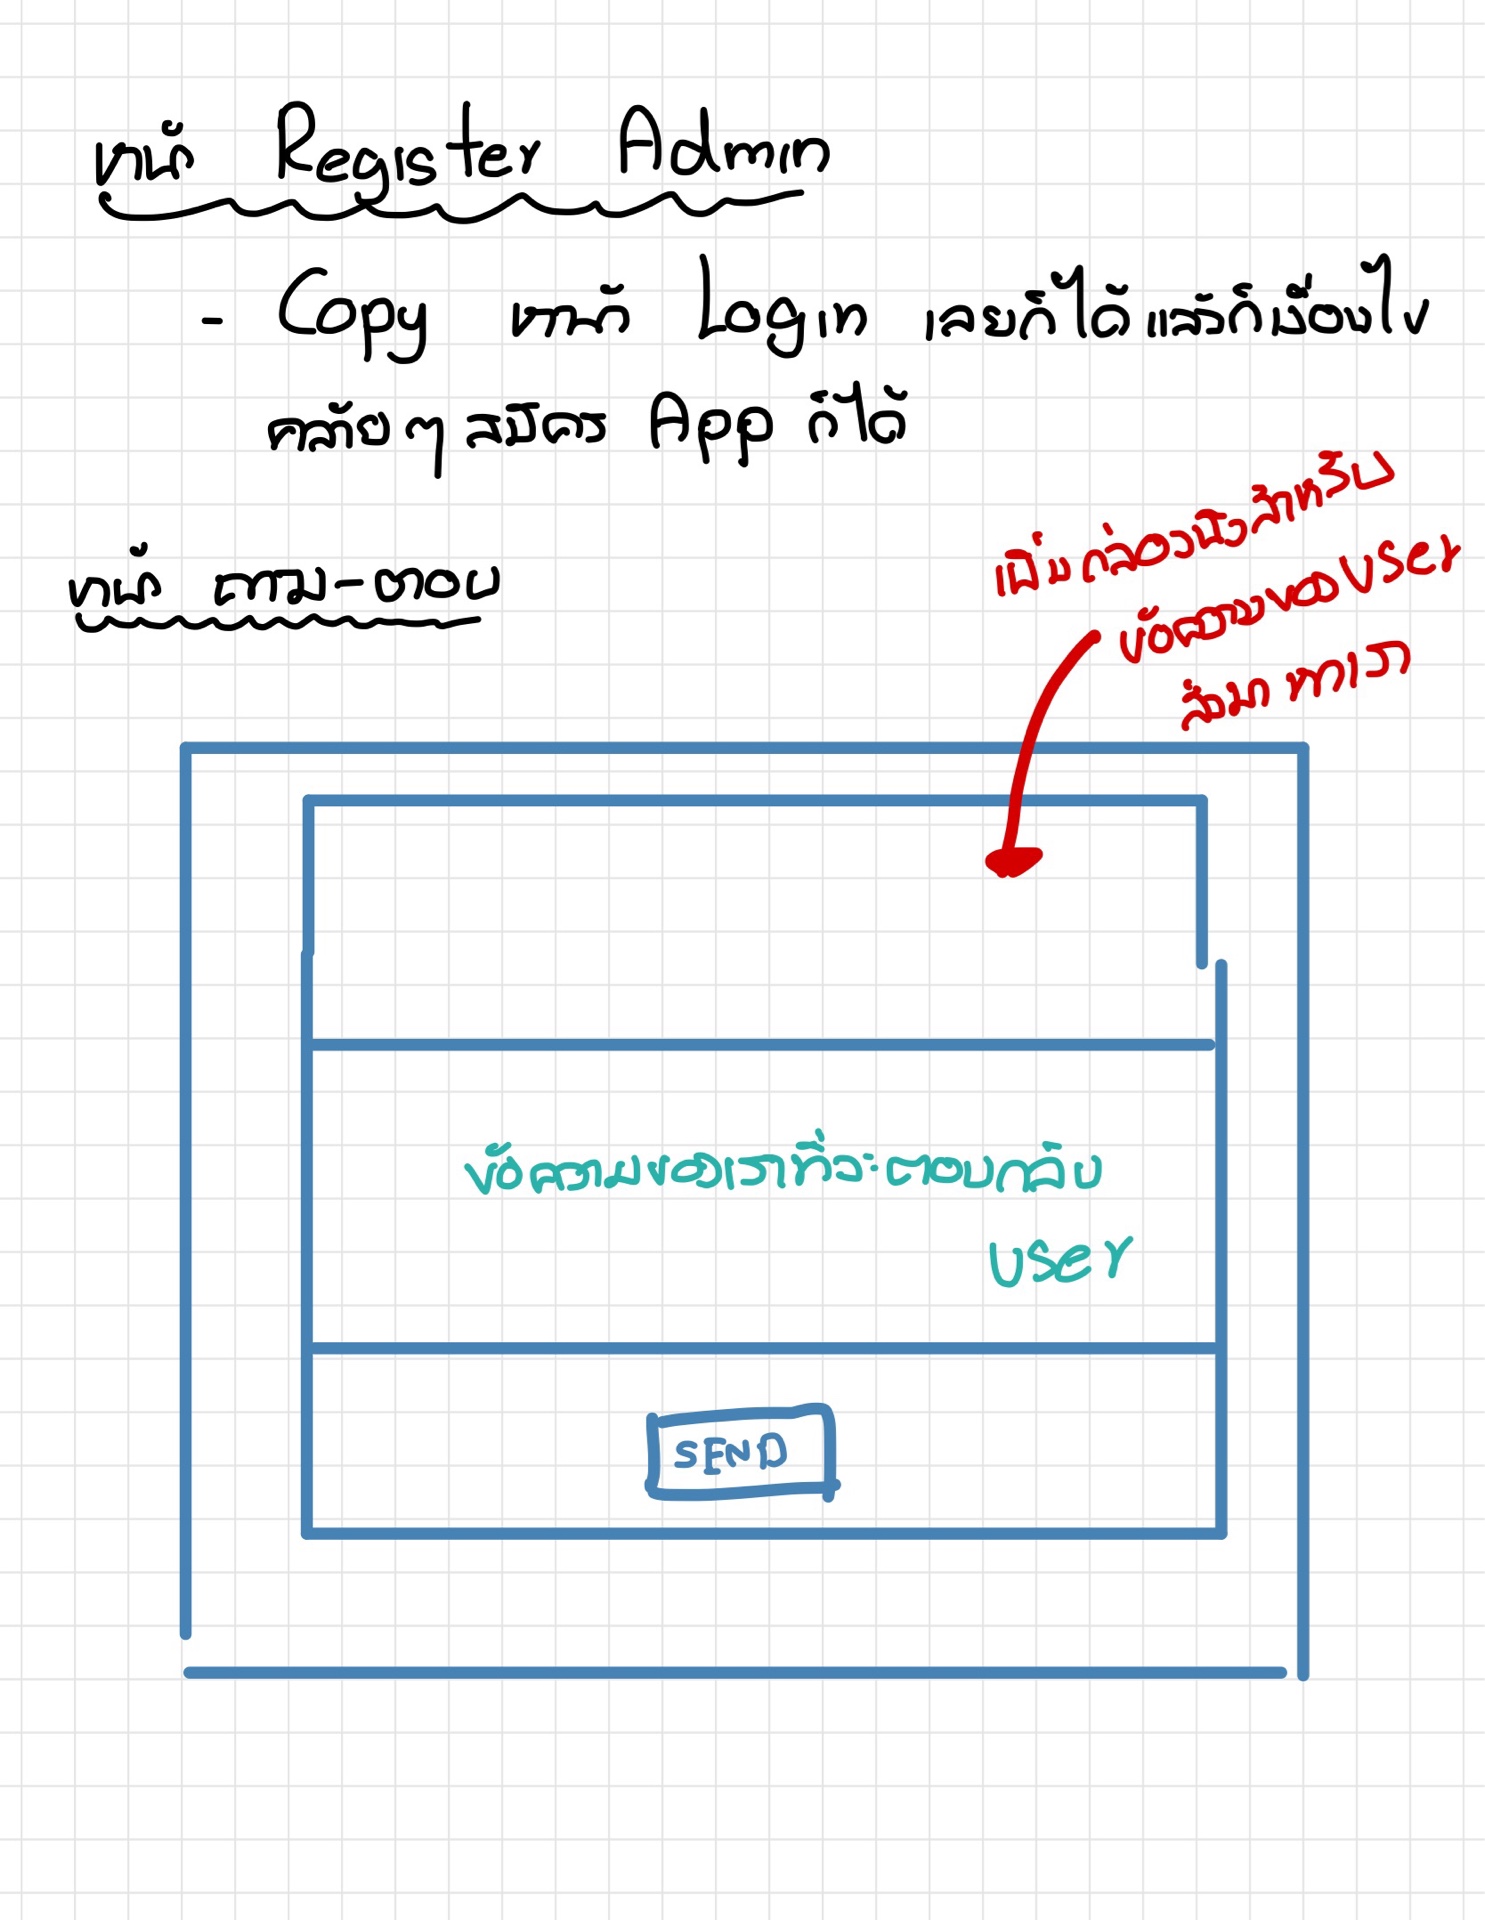 หน้า Register Admin
- Copy หน้า Login เลยก็ได้ แล้วก็เงื่อนไข
คล้าย ๆ สมัคร App ก็ได้
หน้า ถาม-ตอบ
เพิ่มกล่องนึงสำหรับ
ข้อความของ user
ส่งมา หาเรา
ข้อความของเราที่จะตอบกลับ
user
SEND